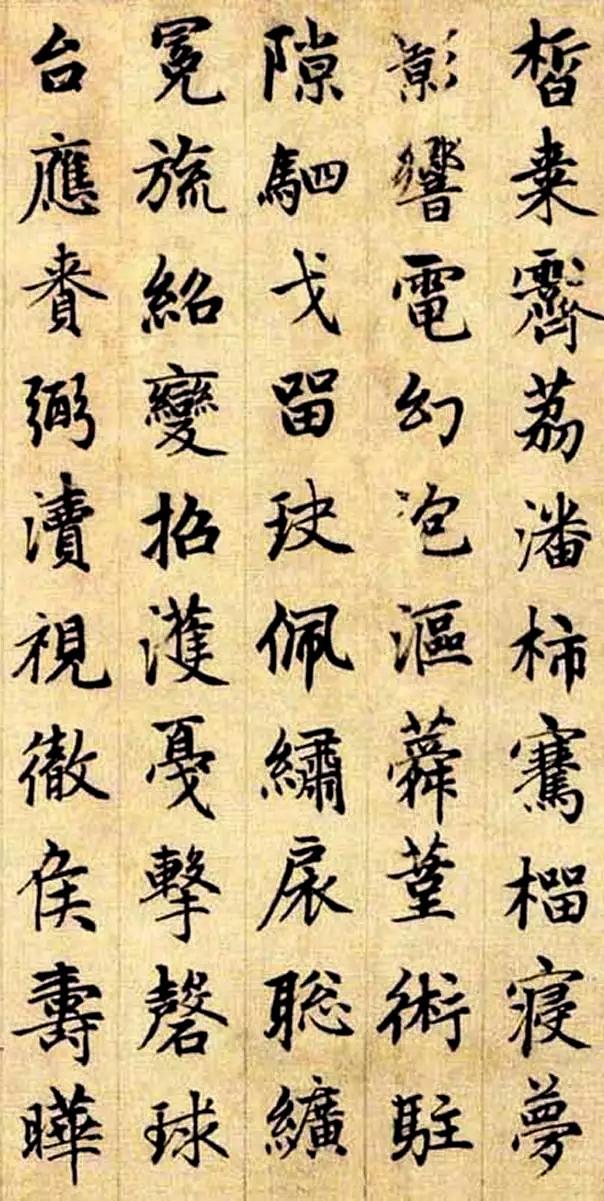 晳霽荔潘柿騫榴寢夢
影響電幻泡漚蕣堇術駐
隙駟戈留玦佩繡扆聡纊
冕旒紹變招濩戛擊磬球
台應賚弼瀆視徹侯壽曄